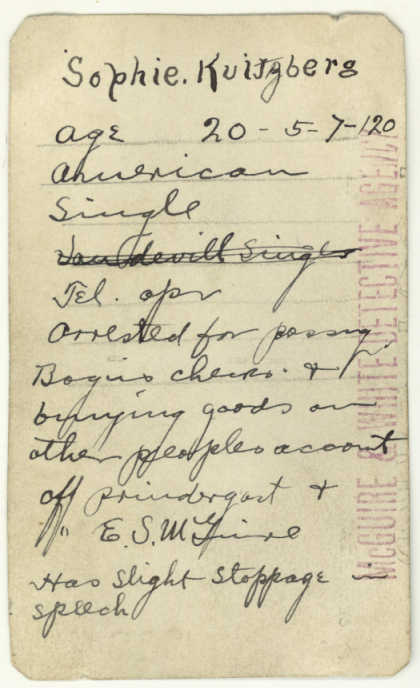 Sophie. Kuitzberg
age 20-5-7-120
American
Single
Vaudevill Singer
Tel. opr
Arrested for passing
Bogus checks. &
bunying goods on
other peoples account
off Prindergast &
" E.S. McGuire
Has slight stoppage in
speech
McGUIRE & WHITE DETECTIVE AGENCY